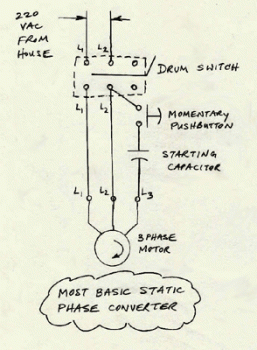 220
VAC
FROM
HOUSE
L1 L2
DRUM SWITCH
L1 L2
MOMENTARY
PUSHBUTTON
STARTING
CAPACITOR
L1 L2 L3
3 PHASE
MOTOR
MOST BASIC STATIC
PHASE CONVERTER